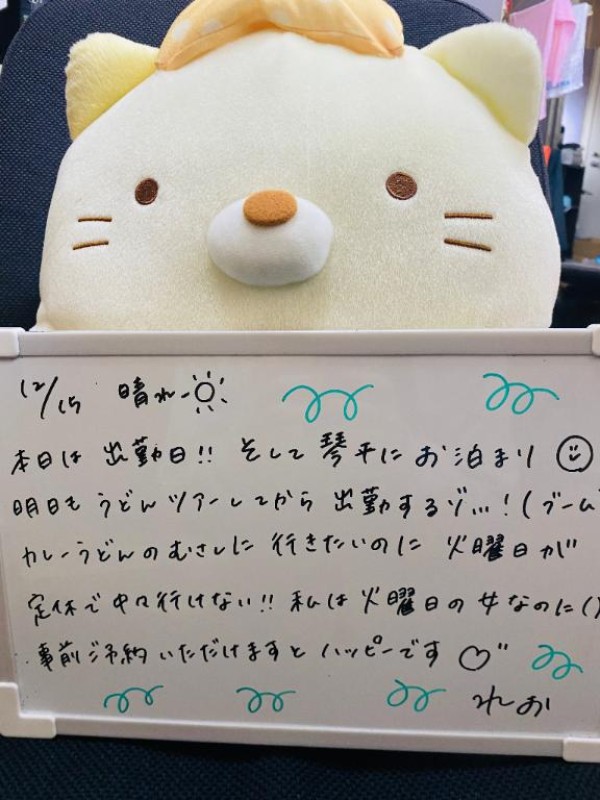 12/15 晴れ
本日は 出勤日!! そして 琴平に お泊まり
明日も うどんツアーしてから 出勤するゾ…!(ブーム
カレーうどんの むさしに 行きたいのに 火曜日が
定休で 中々行けない!! 私は 火曜日の 女なのに()
事前ご予約 いただけますと ハッピーです♡"
れお